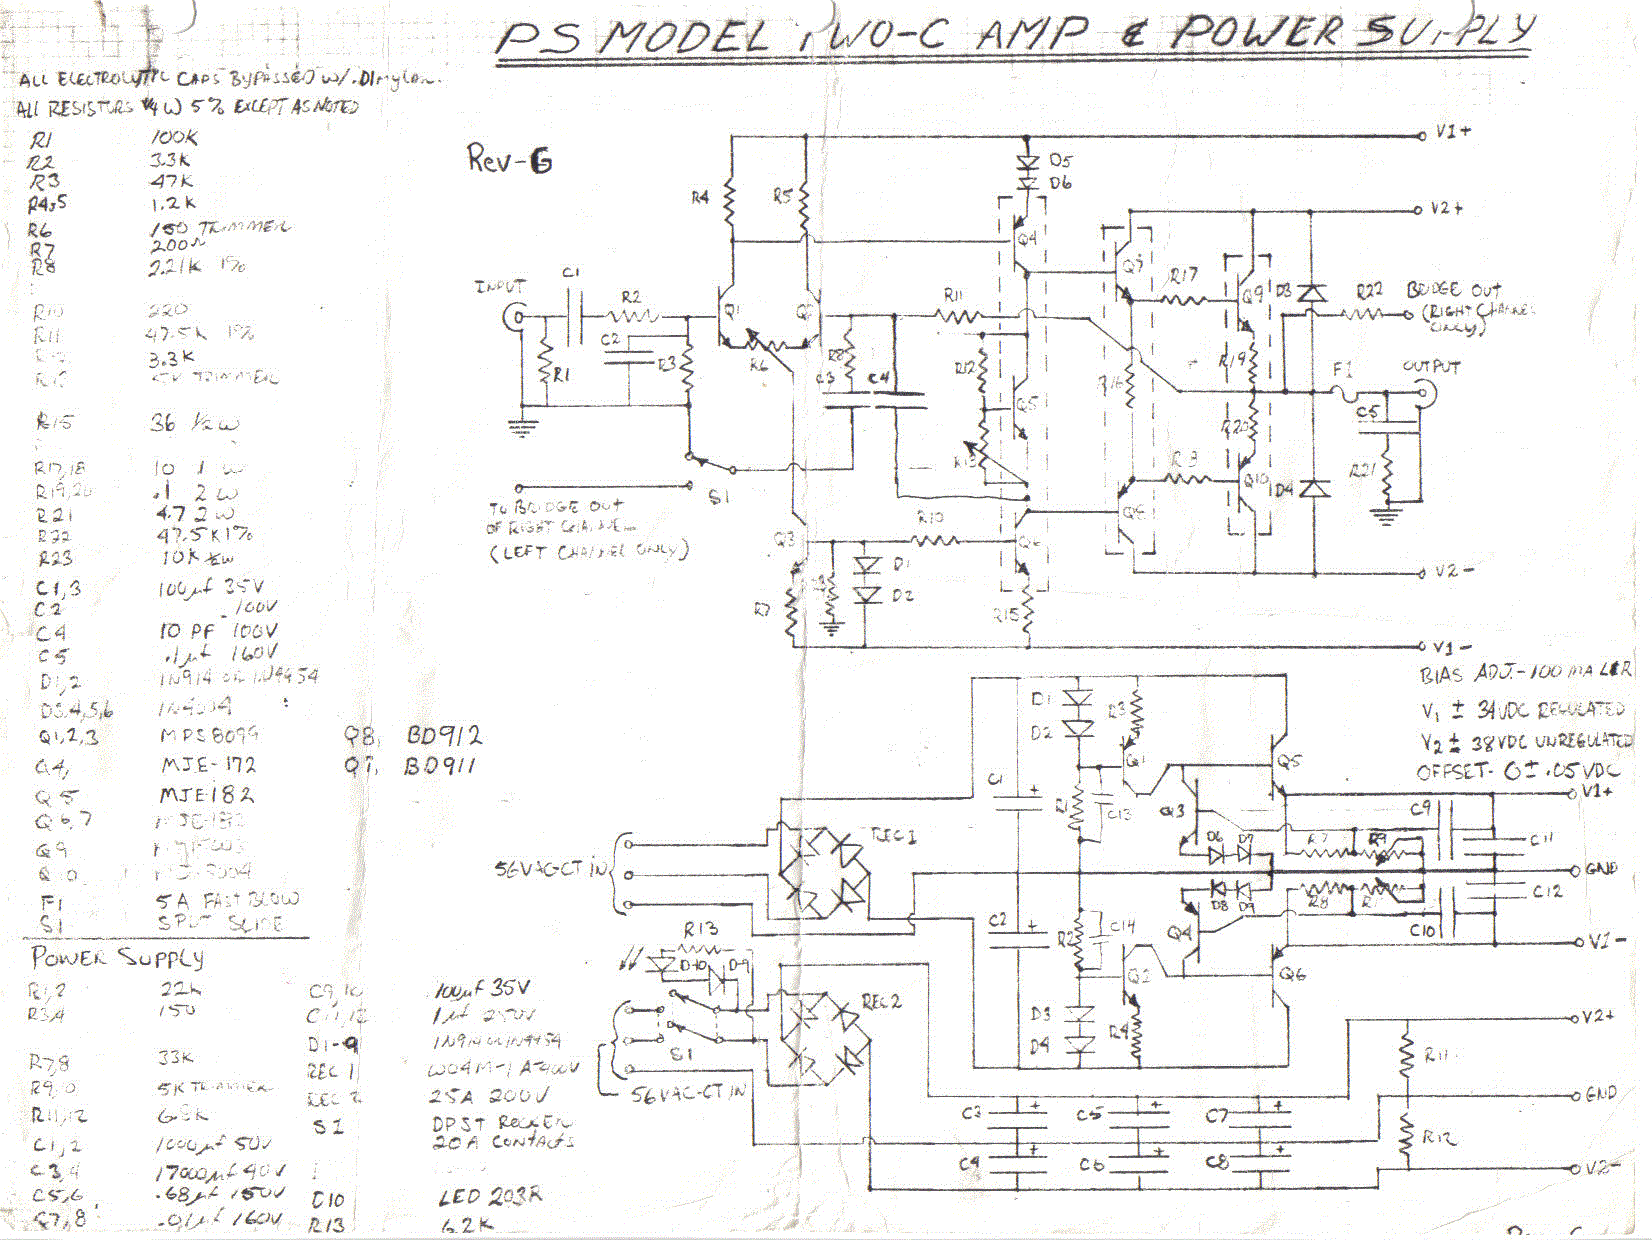 PS MODEL TWO-C AMP & POWER SUPPLY
ALL ELECTROLYTIC CAPS BYPASSED W/ .01 mylar.
ALL RESISTORS 1/4 W 5% EXCEPT AS NOTED
R1 100K
R2 3.3K
R3 47K
R4,5 1.2K
R6 150 TRIMMER
R7 200Ω
R8 2.21K 1%
R10 220
R11 47.5K 1%
R12 3.3K
R13 5K TRIMMER
R15 36 1/2 W
R17,18 10 1 W
R19,20 .1 2 W
R21 4.7 2 W
R22 47.5K 1%
R23 10K 1/2 W
C1,3 100µf 35V
C2 100V
C4 10 PF 100V
C5 .1µf 160V
D1,2 1N914 OR 1N4454
D3,4,5,6 1N4004
Q1,2,3 MPS8099
Q4, MJE-172
Q5 MJE182
Q6,7
Q9
Q10
F1 5A FAST BLOW
S1 SPDT SLIDE
Q8, BD912
Q7, BD911
POWER SUPPLY
R1,2 22K
R3,4 150
R7,8 33K
R9,10 5K TRIMMER
R11,12 6.8K
C1,2 1000µf 50V
C3,4 17000µf 40V
C5,6 .68µf 150V
C7,8 .01µf 160V
C9,10 100µf 35V
C11,12 1µf 250V
D1-9 1N914 OR 1N4454
REC 1 W04M-1 A 400V
REC 2 25A 200V
S1 DPST ROCKER
20A CONTACTS
D10 LED 203R
R13 6.2K
Rev-G
INPUT
C1
R2
R1
C2
R3
R4
R5
Q1
Q2
R6
R8
C3
C4
R11
R12
Q5
R13
D5
D6
V1+
Q4
Q7
R17
Q9
R16
R19
R20
R18
Q10
Q8
D3
D4
V2+
R22
BRIDGE OUT
(RIGHT CHANNEL
ONLY)
F1
OUTPUT
C5
R21
S1
TO BRIDGE OUT
OF RIGHT CHANNEL
(LEFT CHANNEL ONLY)
Q3
R7
D1
D2
R10
Q6
R15
V2-
V1-
BIAS ADJ.-100 MA
V1 ± 34VDC REGULATED
V2 ± 38VDC UNREGULATED
OFFSET- 0±.05VDC
56VAC-CT IN
REC1
C1
C2
D1
D2
R3
Q1
R1
C13
Q3
Q5
D6
D7
R7
R9
C9
C11
V1+
GND
D8
D9
R8
C10
C12
V1-
R2
C14
Q2
Q4
Q6
D3
D4
R4
R13
D10
D9
S1
56VAC-CT IN
REC2
C3
C5
C7
C4
C6
C8
R11
R12
V2+
GND
V2-